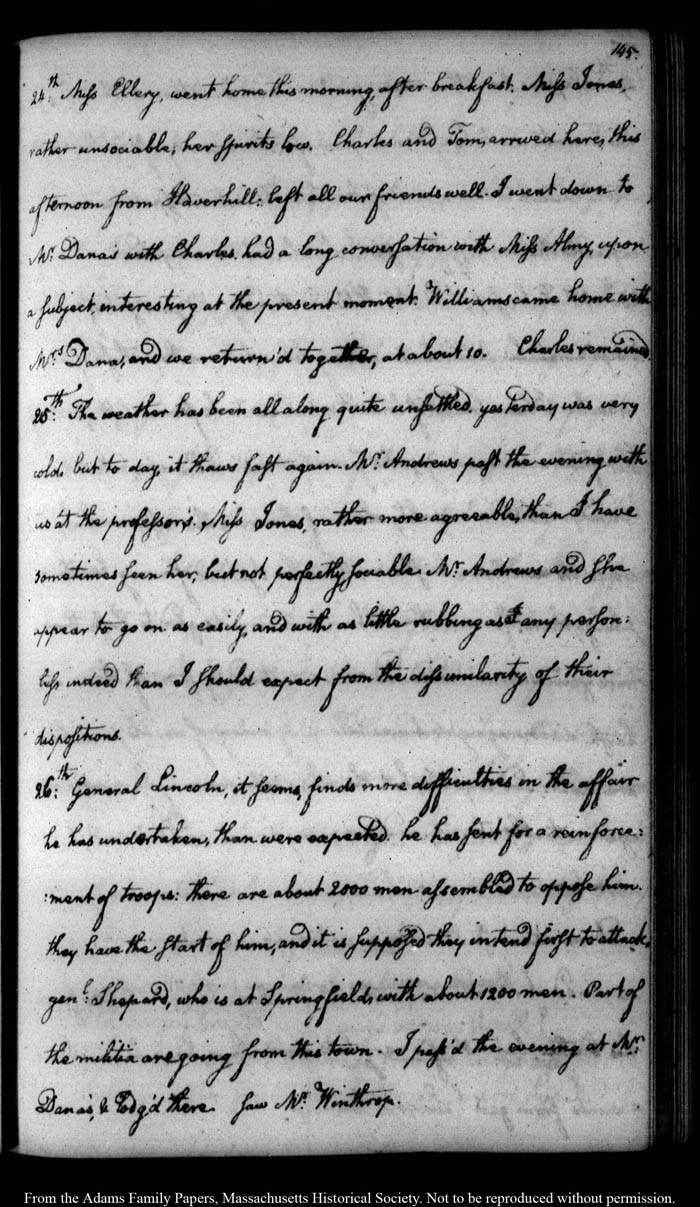 145.
24.th Miss Ellery, went home this morning, after breakfast. Miss Jones,
rather unsociable; her spirits low. Charles and Tom, arrived here, this
afternoon from Haverhill: left all our friends well. I went down to
Mr. Dana's with Charles, had a long conversation with Miss Almy, upon
a subject, interesting at the present moment. Williams came home with
Mrs. Dana, and we return'd together, at about 10. Charles remained.
25.th The weather has been all along quite unsettled. yesterday was very
cold, but to day, it thaws fast again. Mr. Andrews past the evening with
us at the professor's. Miss Jones, rather more agreeable, than I have
sometimes seen her, but not perfectly sociable. Mr. Andrews and she
appear to go on as easily, and with as little rubbing as any person:
less indeed than I should expect from the dissimilarity of their
dispositions.
26.th General Lincoln, it seems, finds more difficulties in the affair
he has undertaken, than were expected. he has sent for a reinforce:
:ment of troops: there are about 2000 men assembled to oppose him.
they have the start of him, and it is supposed they intend first to attack,
genl. Shepard, who is at Springfield, with about 1200 men. Part of
the militia are going from this town. I pass'd the evening at Mr.
Dana's, & lodg'd there. saw Mr. Winthrop.
From the Adams Family Papers, Massachusetts Historical Society. Not to be reproduced without permission.